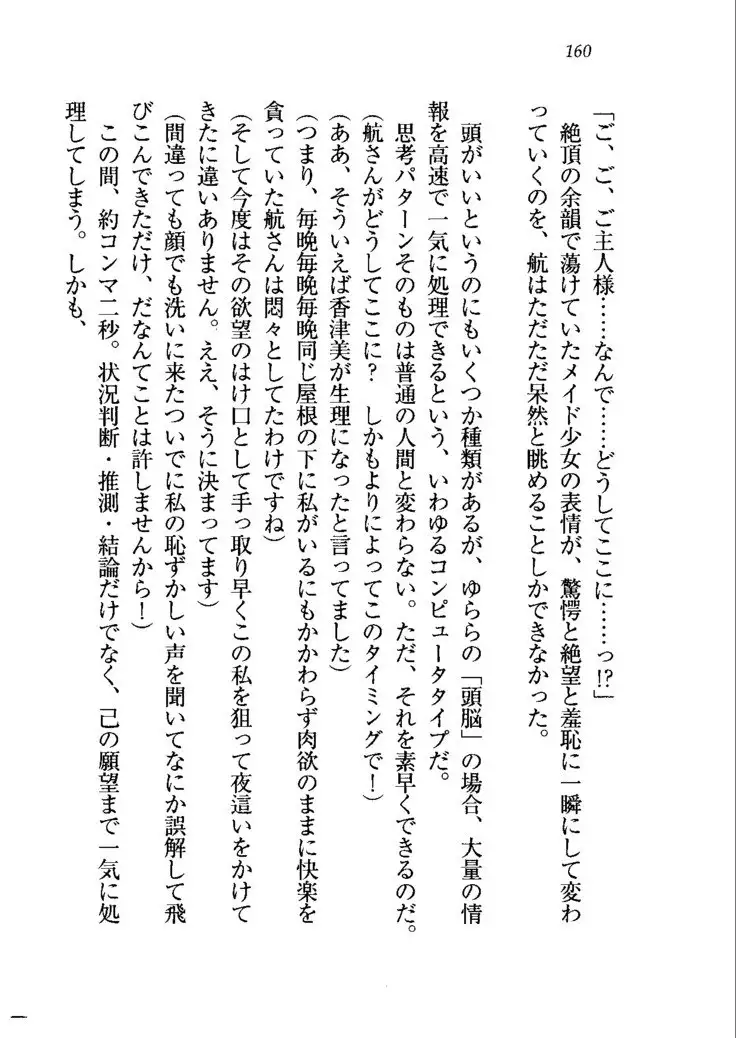 160
「ご、ご、ご主人様……なんで……どうしてここに……っ!?」
絶頂の余韻で蕩けていたメイド少女の表情が、驚愕と絶望と羞恥に一瞬にして変わ
っていくのを、航はただただ呆然と眺めることしかできなかった。
頭がいいというのにもいくつか種類があるが、ゆららの「頭脳」の場合、大量の情
報を高速で一気に処理できるという、いわゆるコンピュータタイプだ。
思考パターンそのものは普通の人間と変わらない。ただ、それを素早くできるのだ。
(航さんがどうしてここに?　しかもよりによってこのタイミングで!)
(ああ、そういえば香津美が生理になったと言ってました)
(つまり、毎晩毎晩毎晩同じ屋根の下に私がいるにもかかわらず肉欲のままに快楽を
貪っていた航さんは悶々としてたわけですね)
(そして今度はその欲望のはけ口として手っ取り早くこの私を狙って夜這いをかけて
きたに違いありません。ええ、そうに決まってます)
(間違っても顔でも洗いに来たついでに私の恥ずかしい声を聞いてなにか誤解して飛
びこんできただけ、だなんてことは許しませんから!)
この間、約コンマ二秒。状況判断・推測・結論だけでなく、己の願望まで一気に処
理してしまう。しかも、